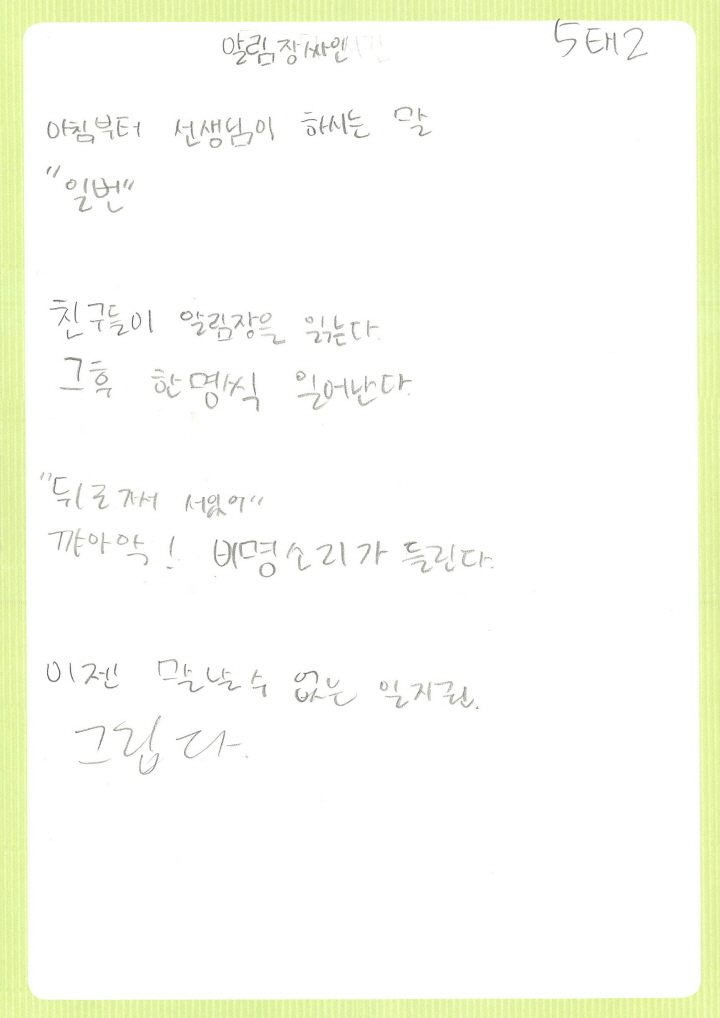 알림장 싸인
5태2
아침부터 선생님이 하시는 말
"일번"
친구들이 알림장을 읽는다.
그후 한명씩 일어난다.
"뒤로가서 서있어"
꺄아악! 비명소리가 들린다.
이젠 만날수 없는 일지권.
그립다.